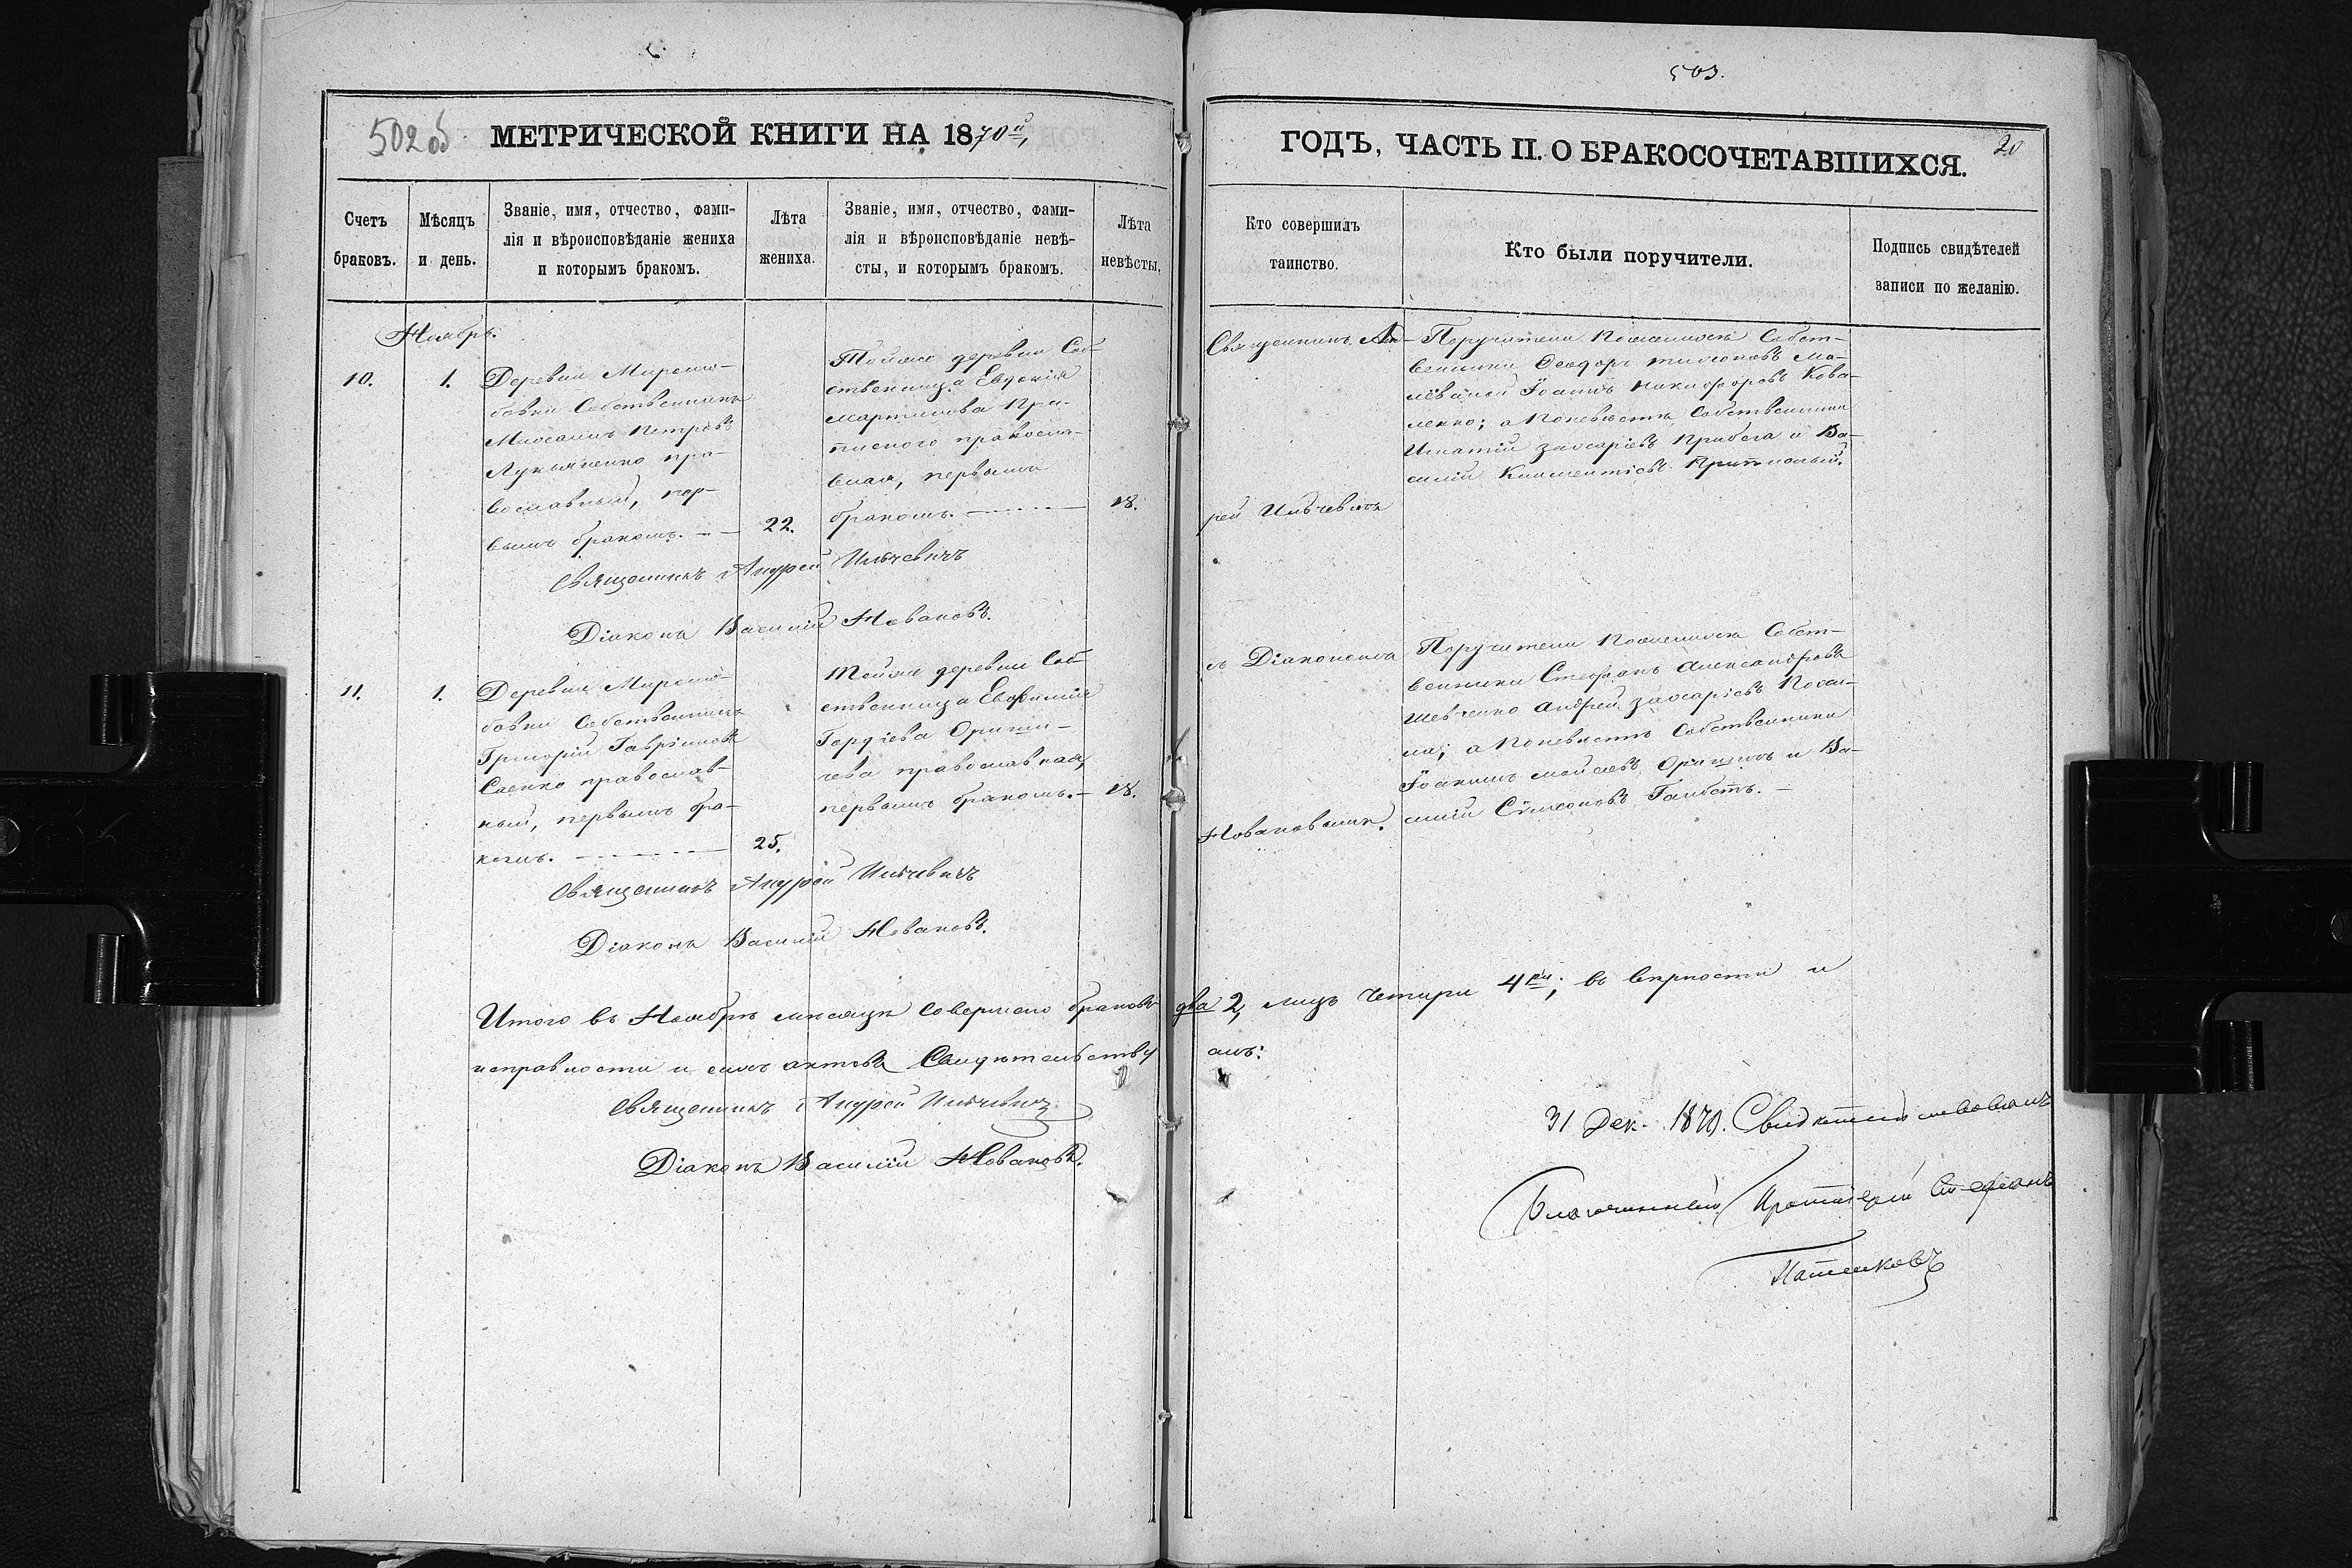 503.
502об
МЕТРИЧЕСКОЙ КНИГИ НА 1870й,
ГОДЪ, ЧАСТЬ II. О БРАКОСОЧЕТАВШИХСЯ.
20
Счетъ
браковъ.
Мѣсяцъ
и день.
Званіе, имя, отчество, фами-
лія и вѣроисповѣданіе жениха
и которымъ бракомъ.
Лѣта
жениха.
Званіе, имя, отчество, фами-
лія и вѣроисповѣданіе невѣ-
сты, и которымъ бракомъ.
Лѣта
невѣсты.
Кто совершилъ
таинство.
Кто были поручители.
Подпись свидѣтелей
записи по желанію.
Ноябрь.
10.
1.
Деревни Миролю-
бовки Собственникъ
Михаилъ Петровъ
Лукьяненко пра-
вославный, пер-
вымъ бракомъ. — —
22.
Тойже деревни Соб-
ственница Евдокія
Мартинова При-
пиского правосла-
вная, первымъ
бракомъ. —
18.
Священникъ Ан-
рей Ильчевичъ
Поручители по женихѣ Собст-
венники Феодоръ
Іоаннъ Никифоровъ Кова-
ленко; а по невѣстѣ Собственники
Игнатій Захаріевъ Прибега и Ва-
силій Климентіевъ
Священникъ Андрей Ильчевичъ
Діаконъ Василій Новаковъ.
11.
1.
Деревни Миролю-
бовки Собственникъ
Григорій Гавріиловъ
Саенко православ-
ный, первымъ бра-
комъ. —
25.
Тойже деревни Соб-
ственница Евфимія
Гордіева Ориш-
чева православная,
первымъ бракомъ. —
18.
съ Діакономъ
Новаковымъ.
Поручители по женихѣ Собст-
венники Стефанъ Александровъ
Шевченко Андрей Захаріевъ
а по невѣстѣ Собственники
Іоакимъ Моисеевъ и Ва-
силій Сѵмеоновъ —
Священникъ Андрей Ильчевичъ
Діаконъ Василій Новаковъ.
Итого въ Ноябрѣ мѣсяцѣ совершено браковъ два 2, лицъ четыри 4ри; въ вѣрности и
исправности и сихъ актовъ Свидѣтельству емъ:
Священникъ Андрей Ильчевичъ
Діаконъ Василій Новаковъ.
31 Дек. 1870. Свидѣтельствовалъ
Благочинный Протоіерей Стефанъ